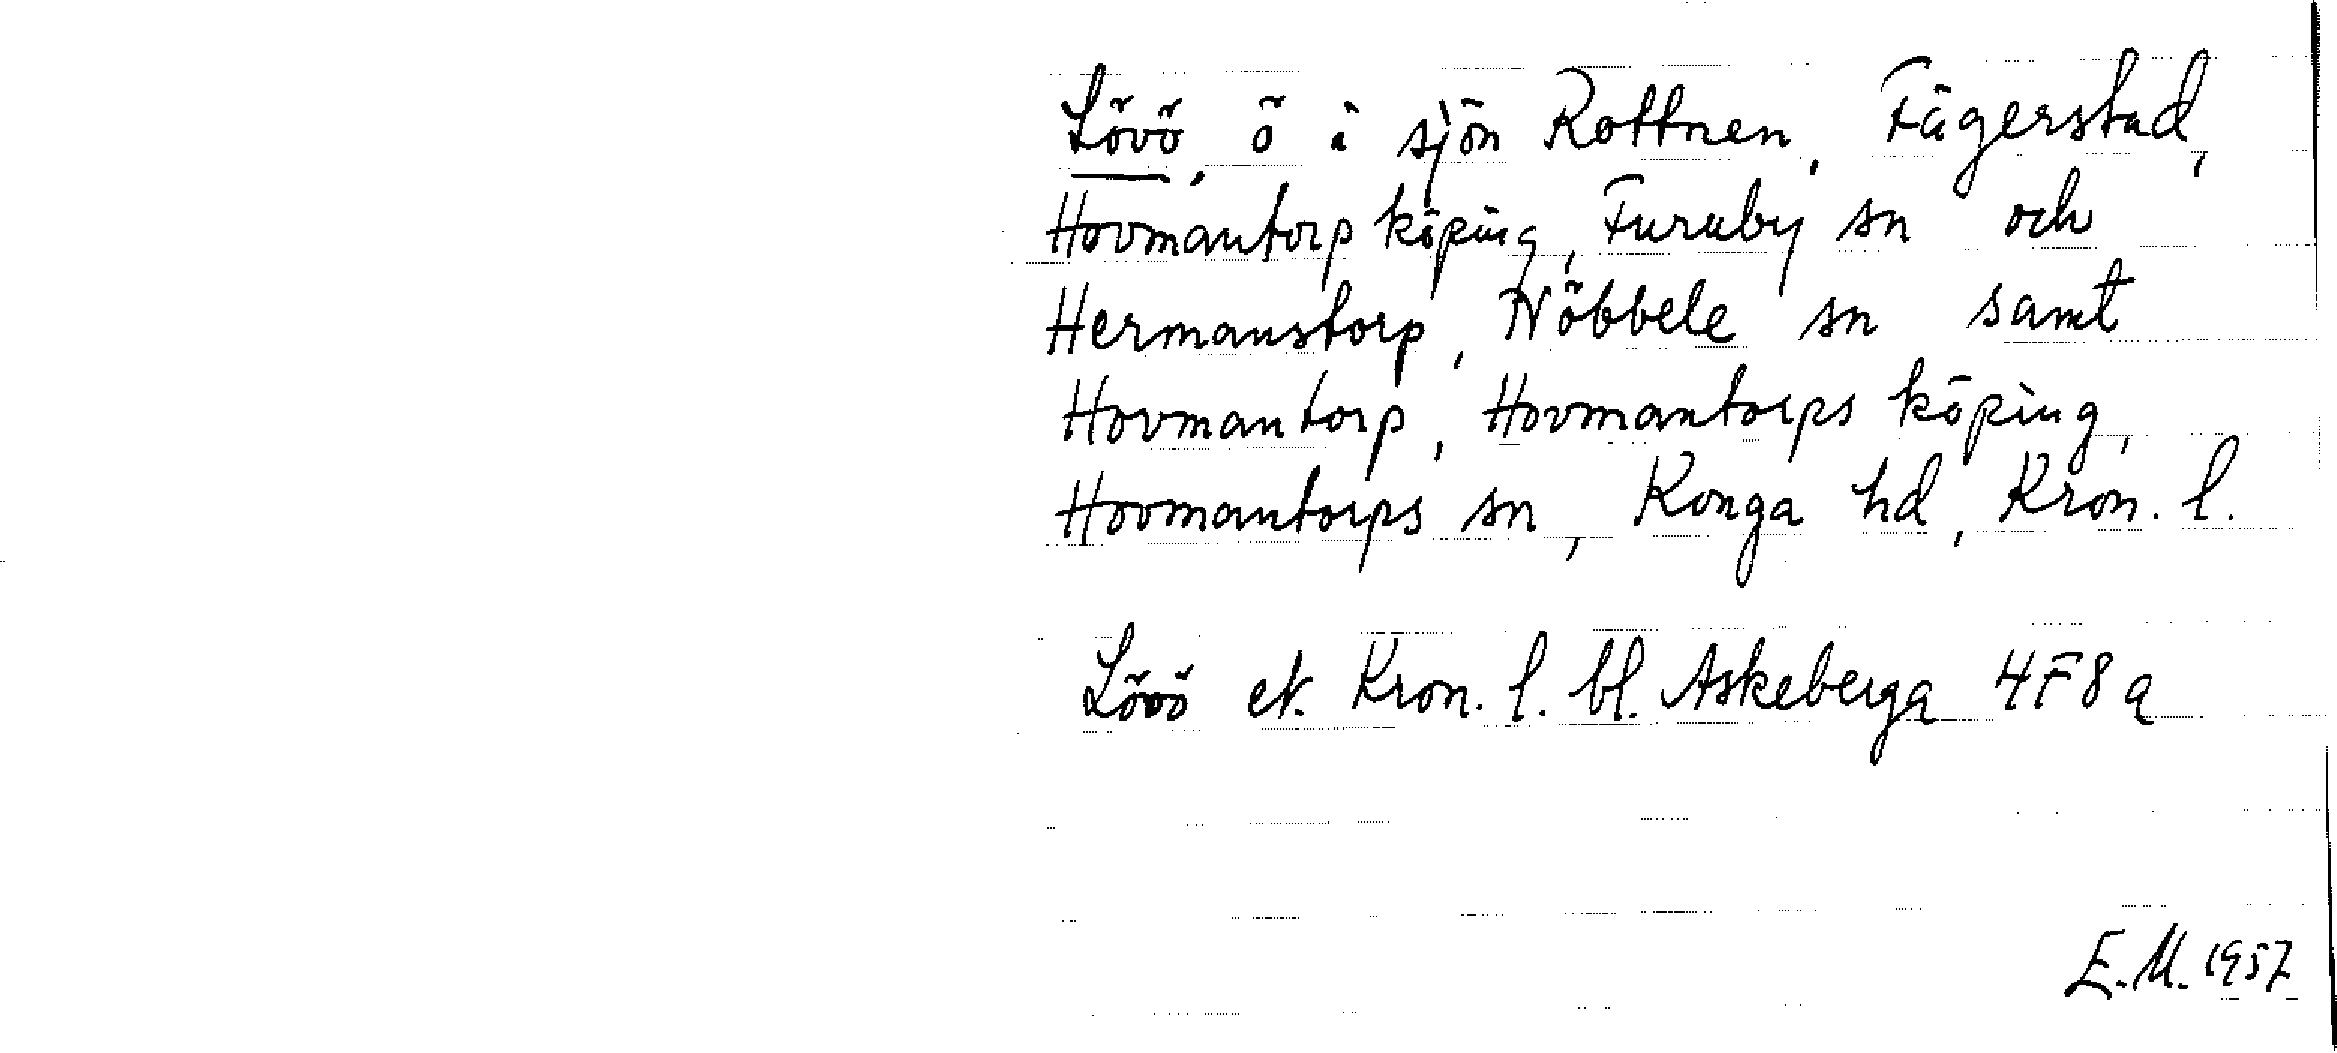 Lövö, ö i sjön Rottnen, Fägerstad,
Hovmantorp köping, Furuby sn och
Hermanstorp, Nöbbele sn samt
Hovmantorp, Hovmantorps köping,
Hovmantorps sn, Konga hd, Kron. l.
Lövö ek. Kron. l. bl. Askeberga 4F8a
E.M. 1957